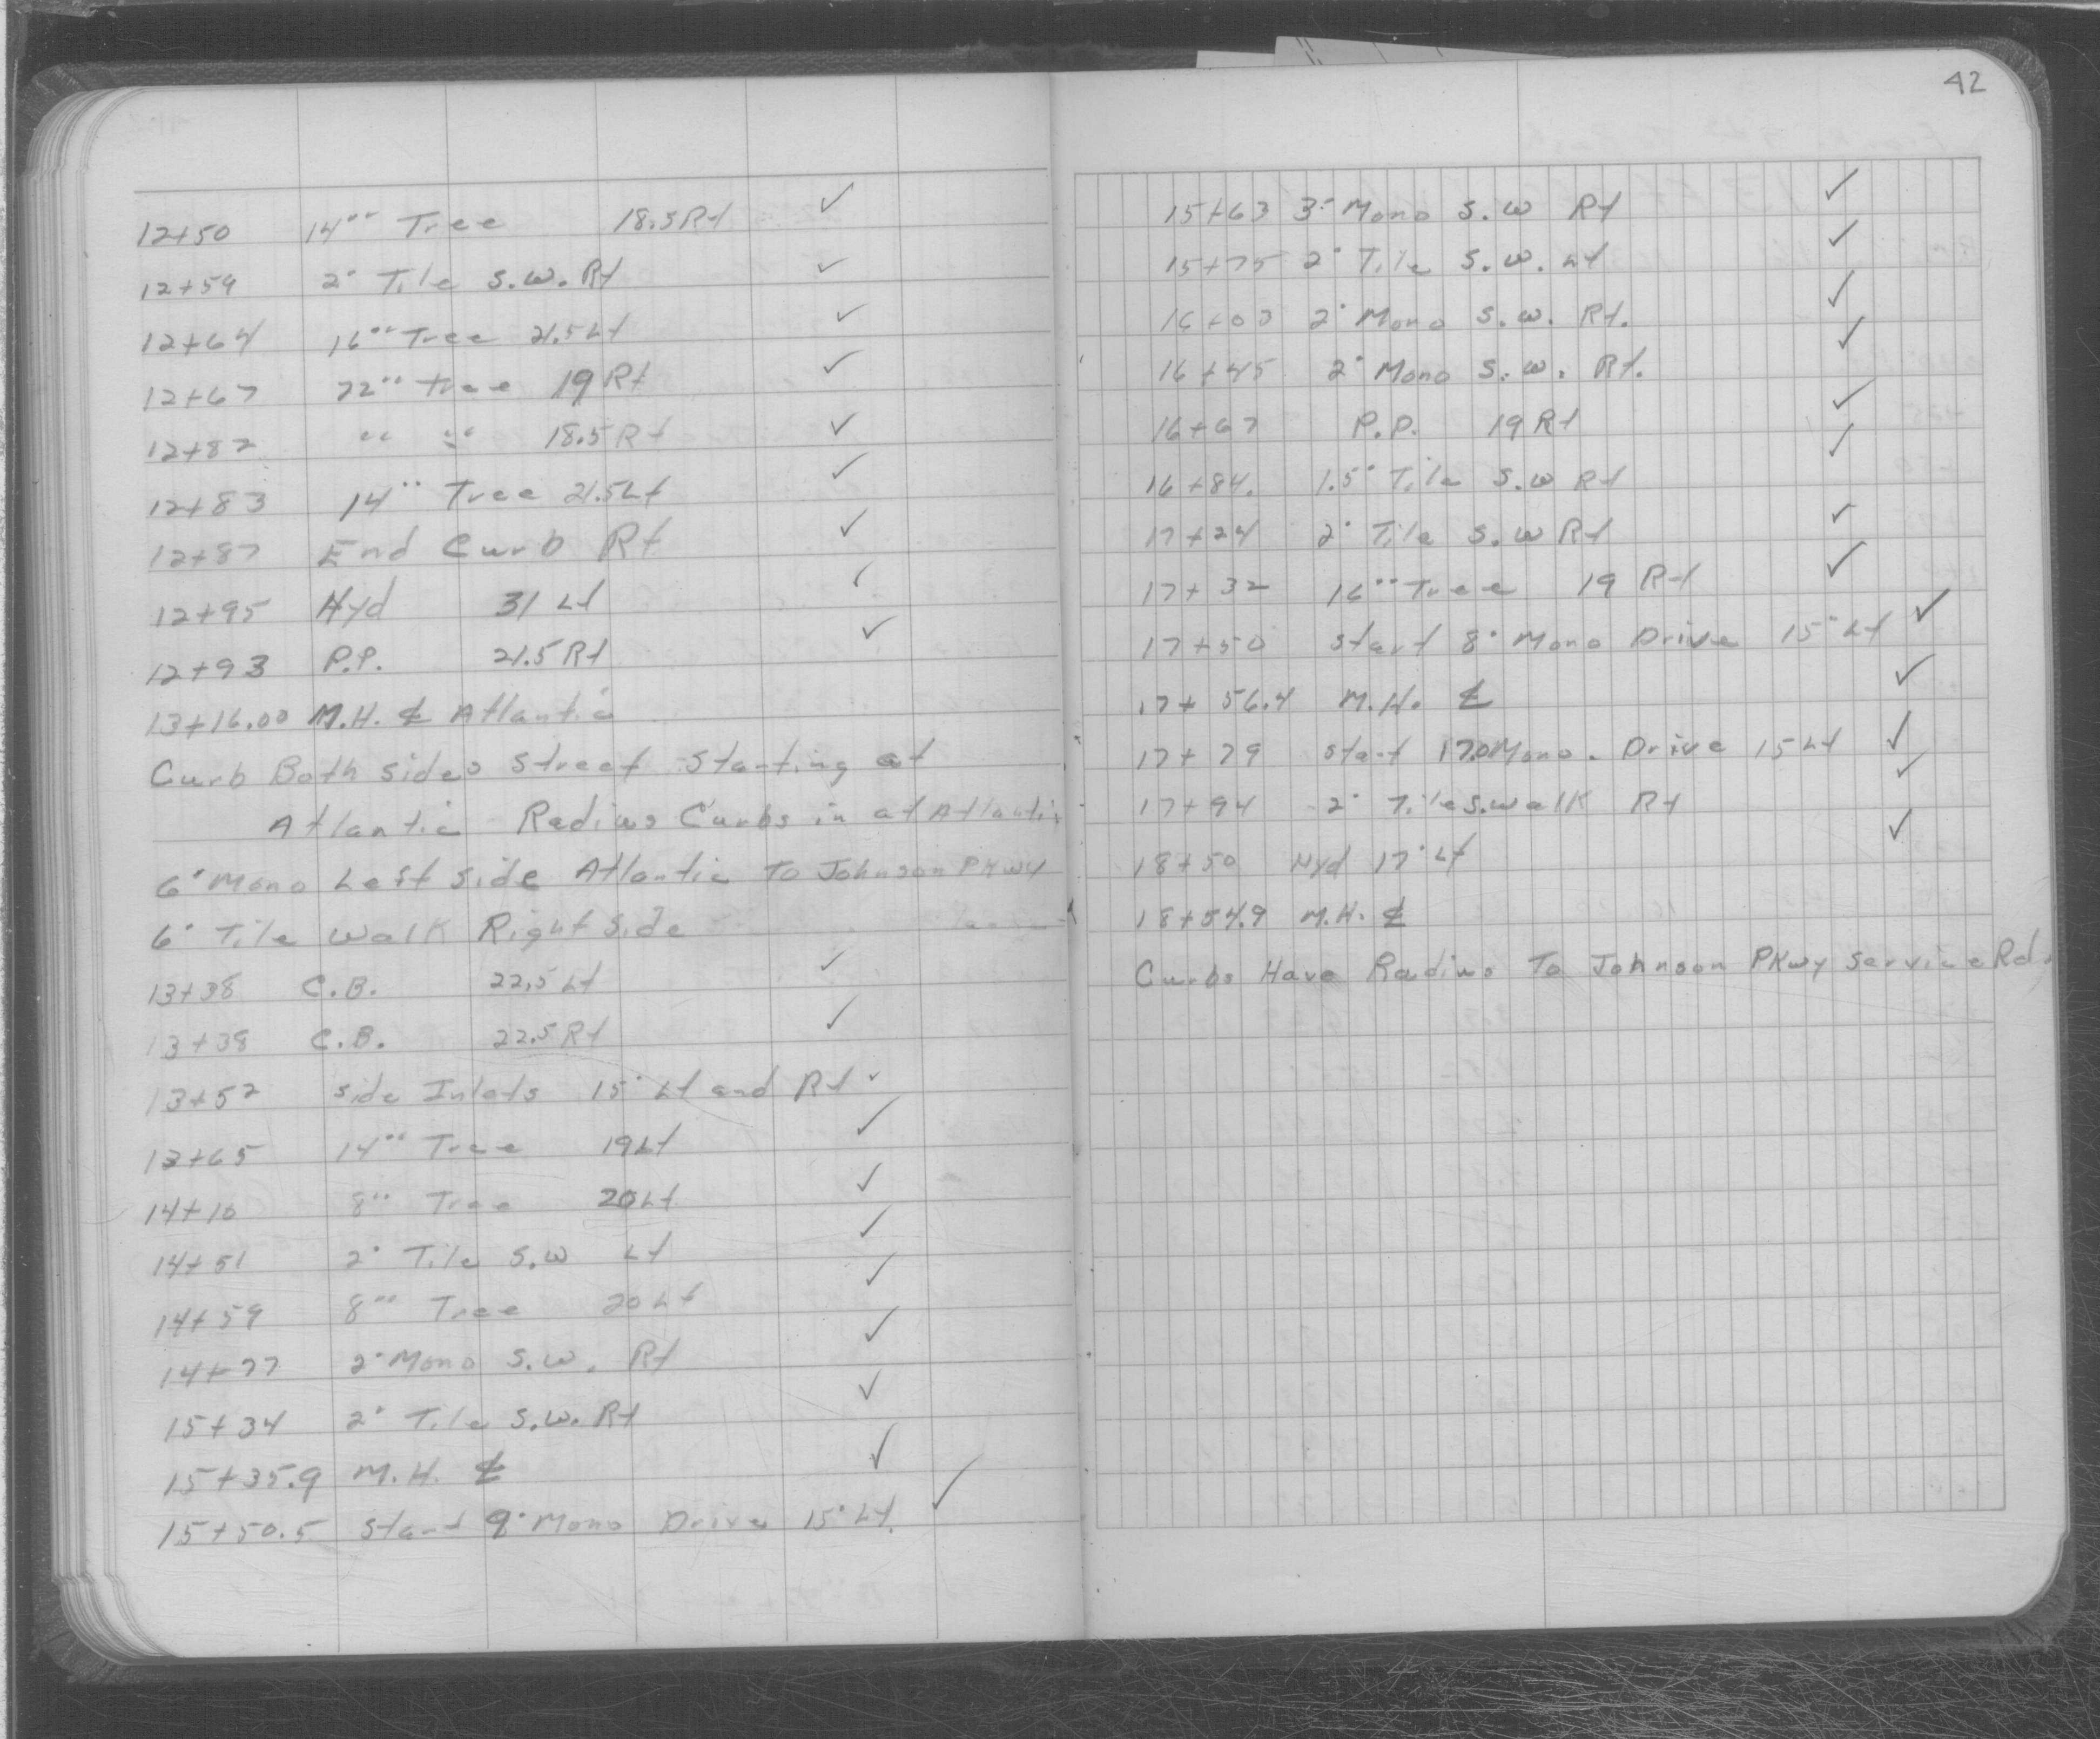 12+50 14" Tree 18.5 Rt ✓
12+59 2' Tile S.W. Rt ✓
12+64 16" Tree 21.5 Lt ✓
12+67 22" tree 19 Rt ✓
12+82 " " 18.5 Rt ✓
12+83 14" Tree 21.5 Lt ✓
12+87 End Curb Rt ✓
12+95 Hyd 31 Lt ✓
12+93 P.P. 21.5 Rt ✓
13+16.00 M.H. ℄ Atlantic
Curb Both sides Street Starting at
Atlantic Radius Curbs in at Atlantic
6' Mono Left side Atlantic To Johnson PKwy
6' Tile walk Right Side
13+38 C.B. 22.5 Lt ✓
13+38 C.B. 22.5 Rt ✓
13+52 side Inlets 15' Lt and Rt ✓
13+65 14" Tree 19 Lt ✓
14+10 8" Tree 20 Lt ✓
14+51 2' Tile S.W Lt ✓
14+59 8" Tree 20 Lt ✓
14+77 2' Mono S.W. Rt ✓
15+34 2' Tile S.W. Rt ✓
15+35.9 M.H. ℄ ✓
15+50.5 Start 9' Mono Drive 15' Lt. ✓
42
15+63 3' Mono S.W Rt ✓
15+75 2' Tile S.W. Lt ✓
16+03 2' Mono S.W. Rt. ✓
16+45 2' Mono S.W. Rt. ✓
16+67 P.P. 19 Rt ✓
16+84. 1.5' Tile S.W Rt ✓
17+24 2' Tile S.W Rt ✓
17+32 16" Tree 19 Rt ✓
17+50 start 8' Mono Drive 15' Lt ✓
17+56.4 M.H. ℄ ✓
17+79 start 17.0 Mono. Drive 15 Lt ✓
17+94 2' Tile S.walk Rt ✓
18+50 Hyd 17' Lt ✓
18+54.9 M.H. ℄
Curbs Have Radius To Johnson PKwy Service Rd.